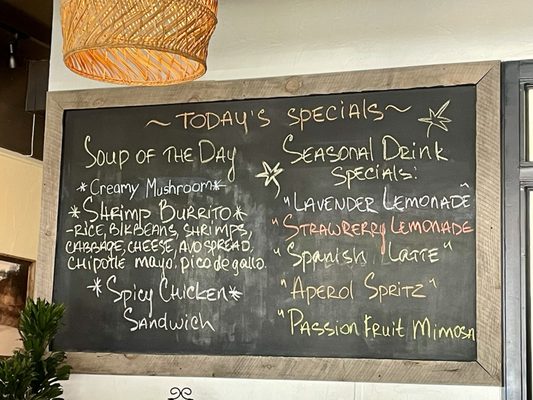 ~ TODAY'S SPECIALS ~
SOUP OF THE DAY
*CREAMY MUSHROOM*
*SHRIMP BURRITO*
-RICE, BLK BEANS, SHRIMPS,
CABBAGE, CHEESE, AVO SPREAD,
CHIPOTLE MAYO, PICO DE GALLO.
*SPICY CHICKEN*
SANDWICH
SEASONAL DRINK
SPECIALS:
"LAVENDER LEMONADE"
"STRAWBERRY LEMONADE
"SPANISH LATTE"
"APEROL SPRITZ"
"PASSION FRUIT MIMOSA